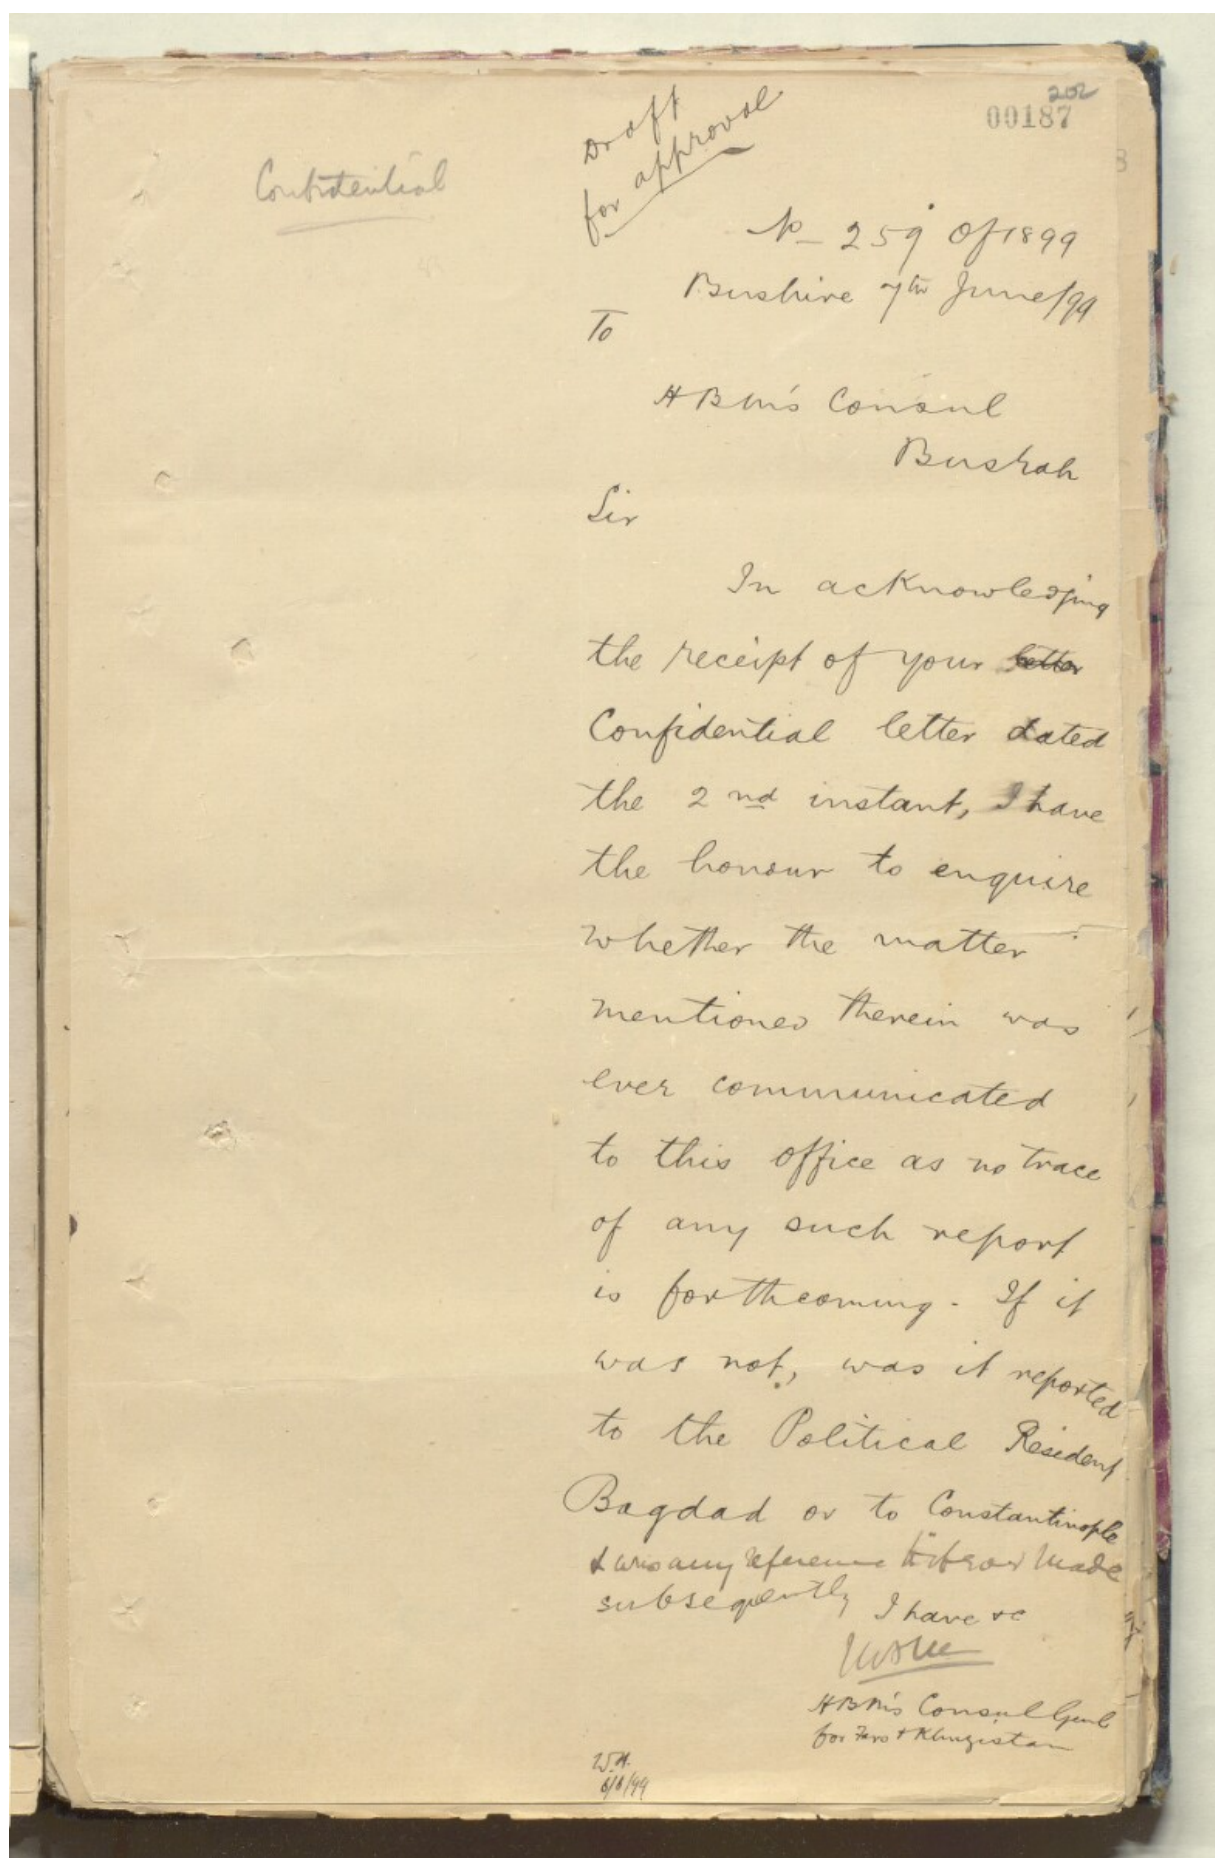 202
00187
Draft
for approval
Confidential
No 259 of 1899
Bushire 7th June/99
To
HBM's Consul
Busrah
Sir
In acknowledging
the receipt of your letter
Confidential letter dated
the 2nd instant, I have
the honour to enquire
whether the matter
mentioned therein was
ever communicated
to this office as no trace
of any such report
is forthcoming. If it
was not, was it reported
to the Political Resident
Bagdad or to Constantinople
& was any reference to it ever made
subsequently
I have &c
HBM's Consul Genl
for Fars & Khuzistan
6/6/99